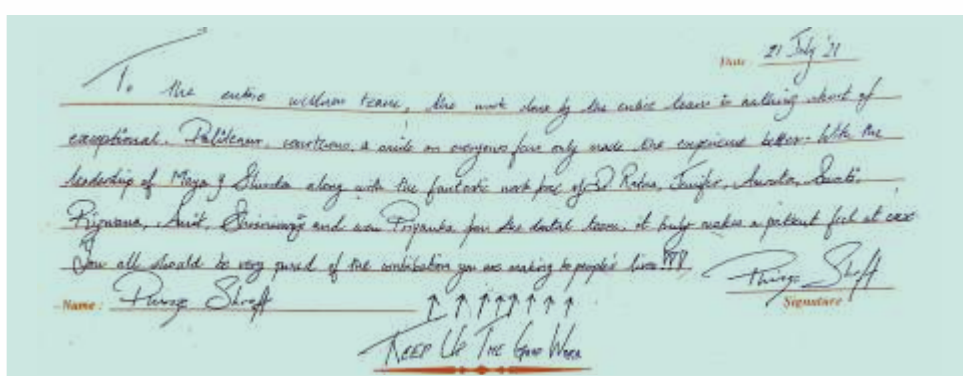 Date 21 July '21
To the entire wellness team, the work done by the entire team is nothing short of
exceptional. Politeness, courteous, a smile on everyones face only made the experience better. With the
leadership of Maya & along with the fantastic work of Dr. Ratna, Jenifer, Swati,
Rizwana, Amit, and even Priyanka from the dental team, it truly makes a patient feel at ease
You all should be very proud of the contribution you are making to people's lives!!!!
Name: Shroff
Shroff
Signature
KEEP UP THE GOOD WORK